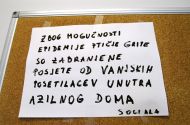 ZBOG MOGUČNOSTI
EPIDEMIJE PTIČIJE GRIPE
SO ZABRANJENE
POSJETE OD VANJSKIH
POSETILACEV UNUTRA
AZILNOG DOMA
SOCIALA